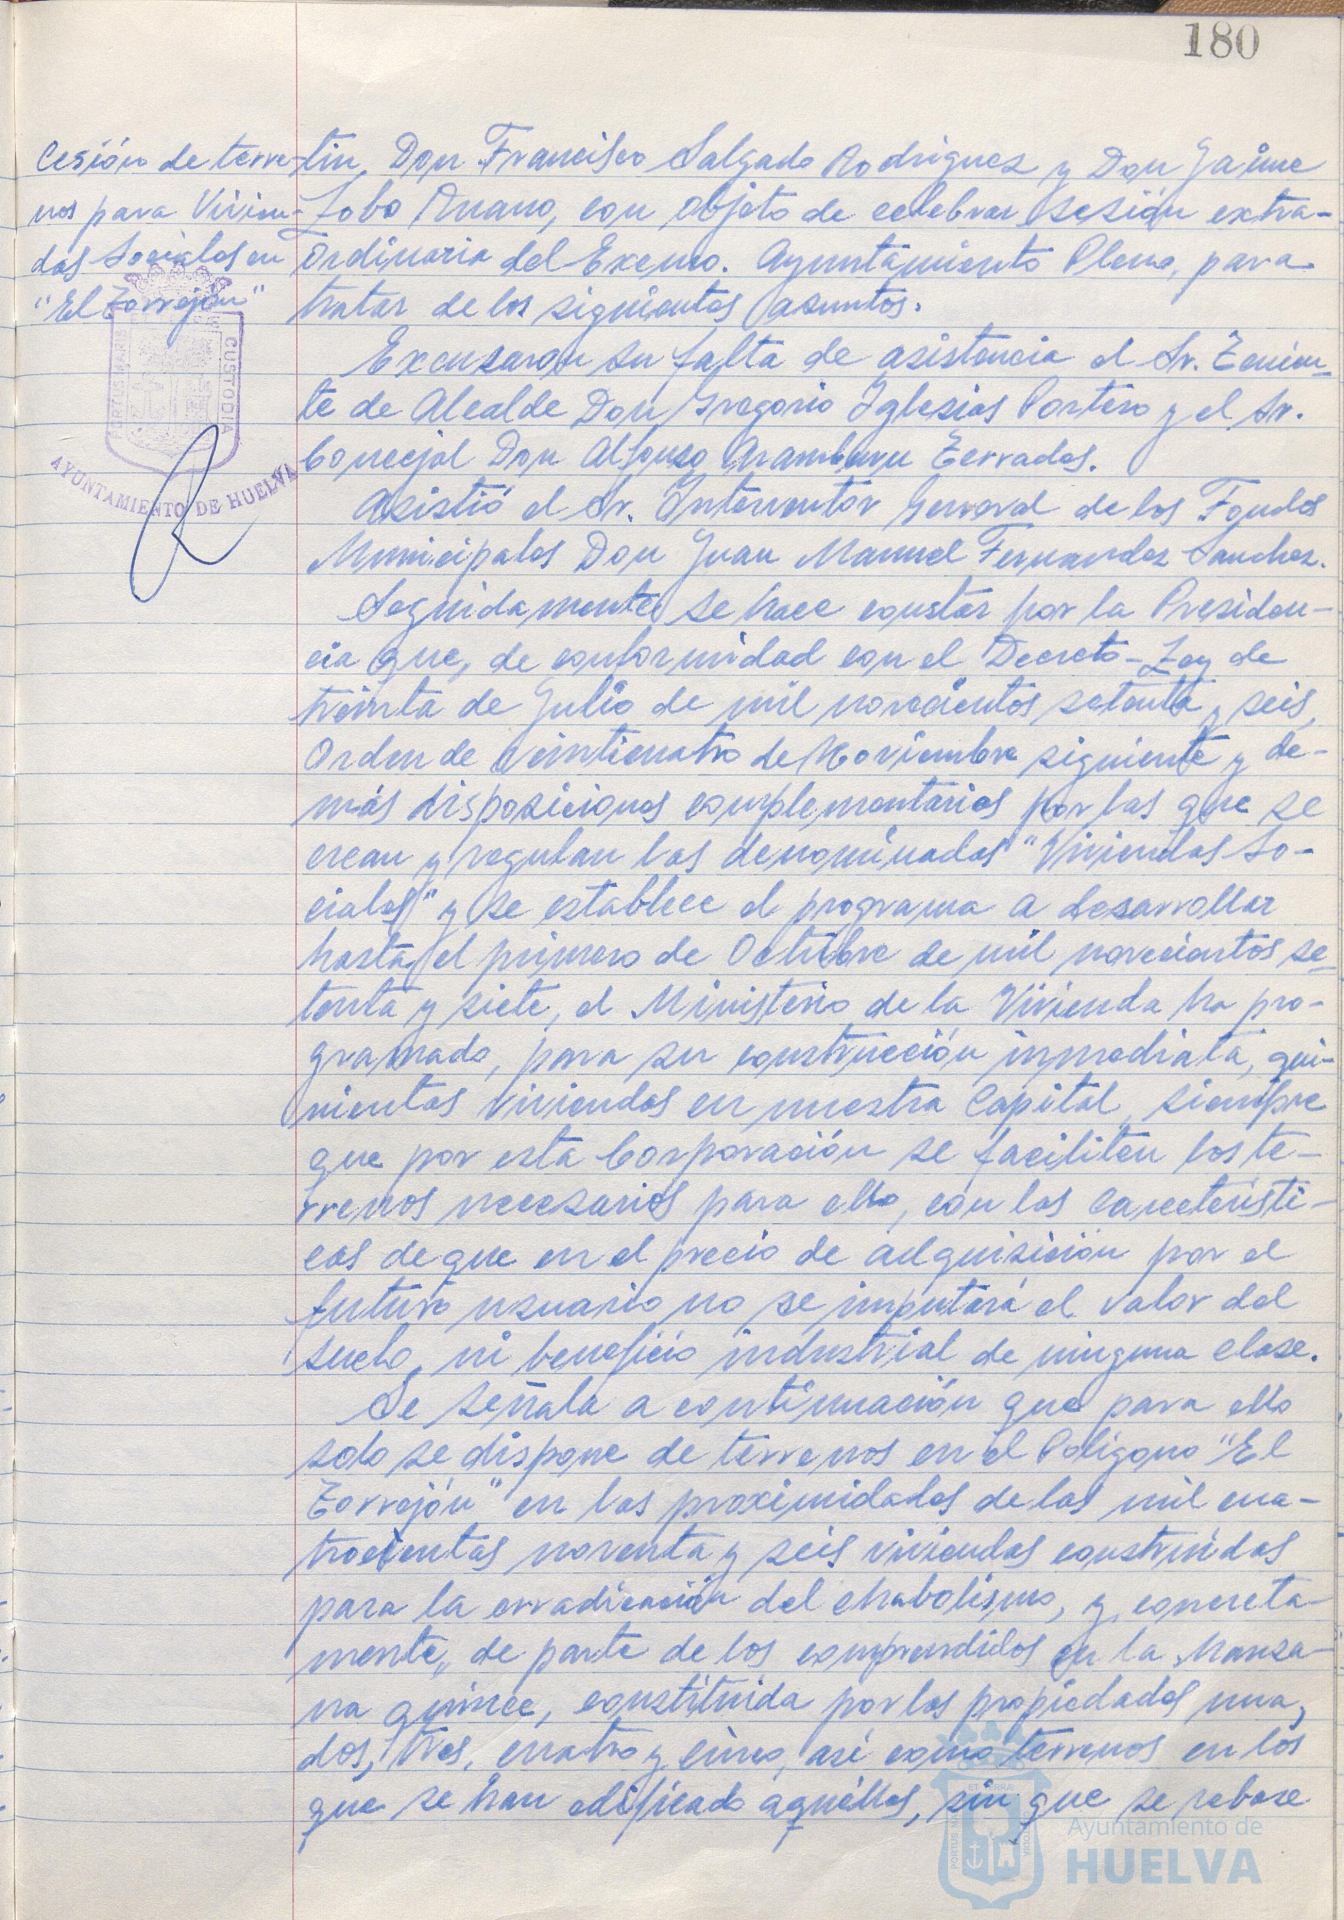 180
Cesión de terre-
nos para Vivien-
das Sociales en
"El Torrejón"
PORTUS MARIS
CUSTODIA
AYUNTAMIENTO DE HUELVA
tin, Don Francisco Salgado Rodriguez y Don Jaime
Lobo Anano, con objeto de celebrar sesión extra-
ordinaria del Excmo. Ayuntamiento Pleno, para
tratar de los siguientes asuntos.
Excusaron su falta de asistencia el Sr. Tenien-
te de Alcalde Don Gregorio Iglesias Portero y el Sr.
Concejal Don Alfonso Aramburu Terrades.
Asistió el Sr. Interventor General de los Fondos
Municipales Don Juan Manuel Fernandez Sanchez.
Seguidamente se hace constar por la Presiden-
cia que, de conformidad con el Decreto-Ley de
treinta de Julio de mil novecientos setenta y seis,
Orden de veinticuatro de Noviembre siguiente y de-
más disposiciones complementarias por las que se
crean y regulan las denominadas "Viviendas So-
ciales" y se establece el programa a desarrollar
hasta el primero de Octubre de mil novecientos se-
tenta y siete, el Ministerio de la Vivienda ha pro-
gramado, para su construcción inmediata, qui-
nientas viviendas en nuestra Capital, siempre
que por esta Corporación se faciliten los te-
rrenos necesarios para ello, con las caracteristi-
cas de que en el precio de adquisición por el
futuro usuario no se imputará el valor del
suelo, ni beneficio industrial de ninguna clase.
Se señala a continuación que para ello
solo se dispone de terrenos en el Poligono "El
Torrejón" en las proximidades de las mil cua-
trocientas noventa y seis viviendas construidas
para la erradicación del chabolismo, y, concreta-
mente, de parte de los comprendidos en la Manza-
na quince, constituida por las propiedades una,
dos, tres, cuatro y cinco, asi como terrenos en los
que se han edificado aquéllas, sin que se rebase
Ayuntamiento de
HUELVA